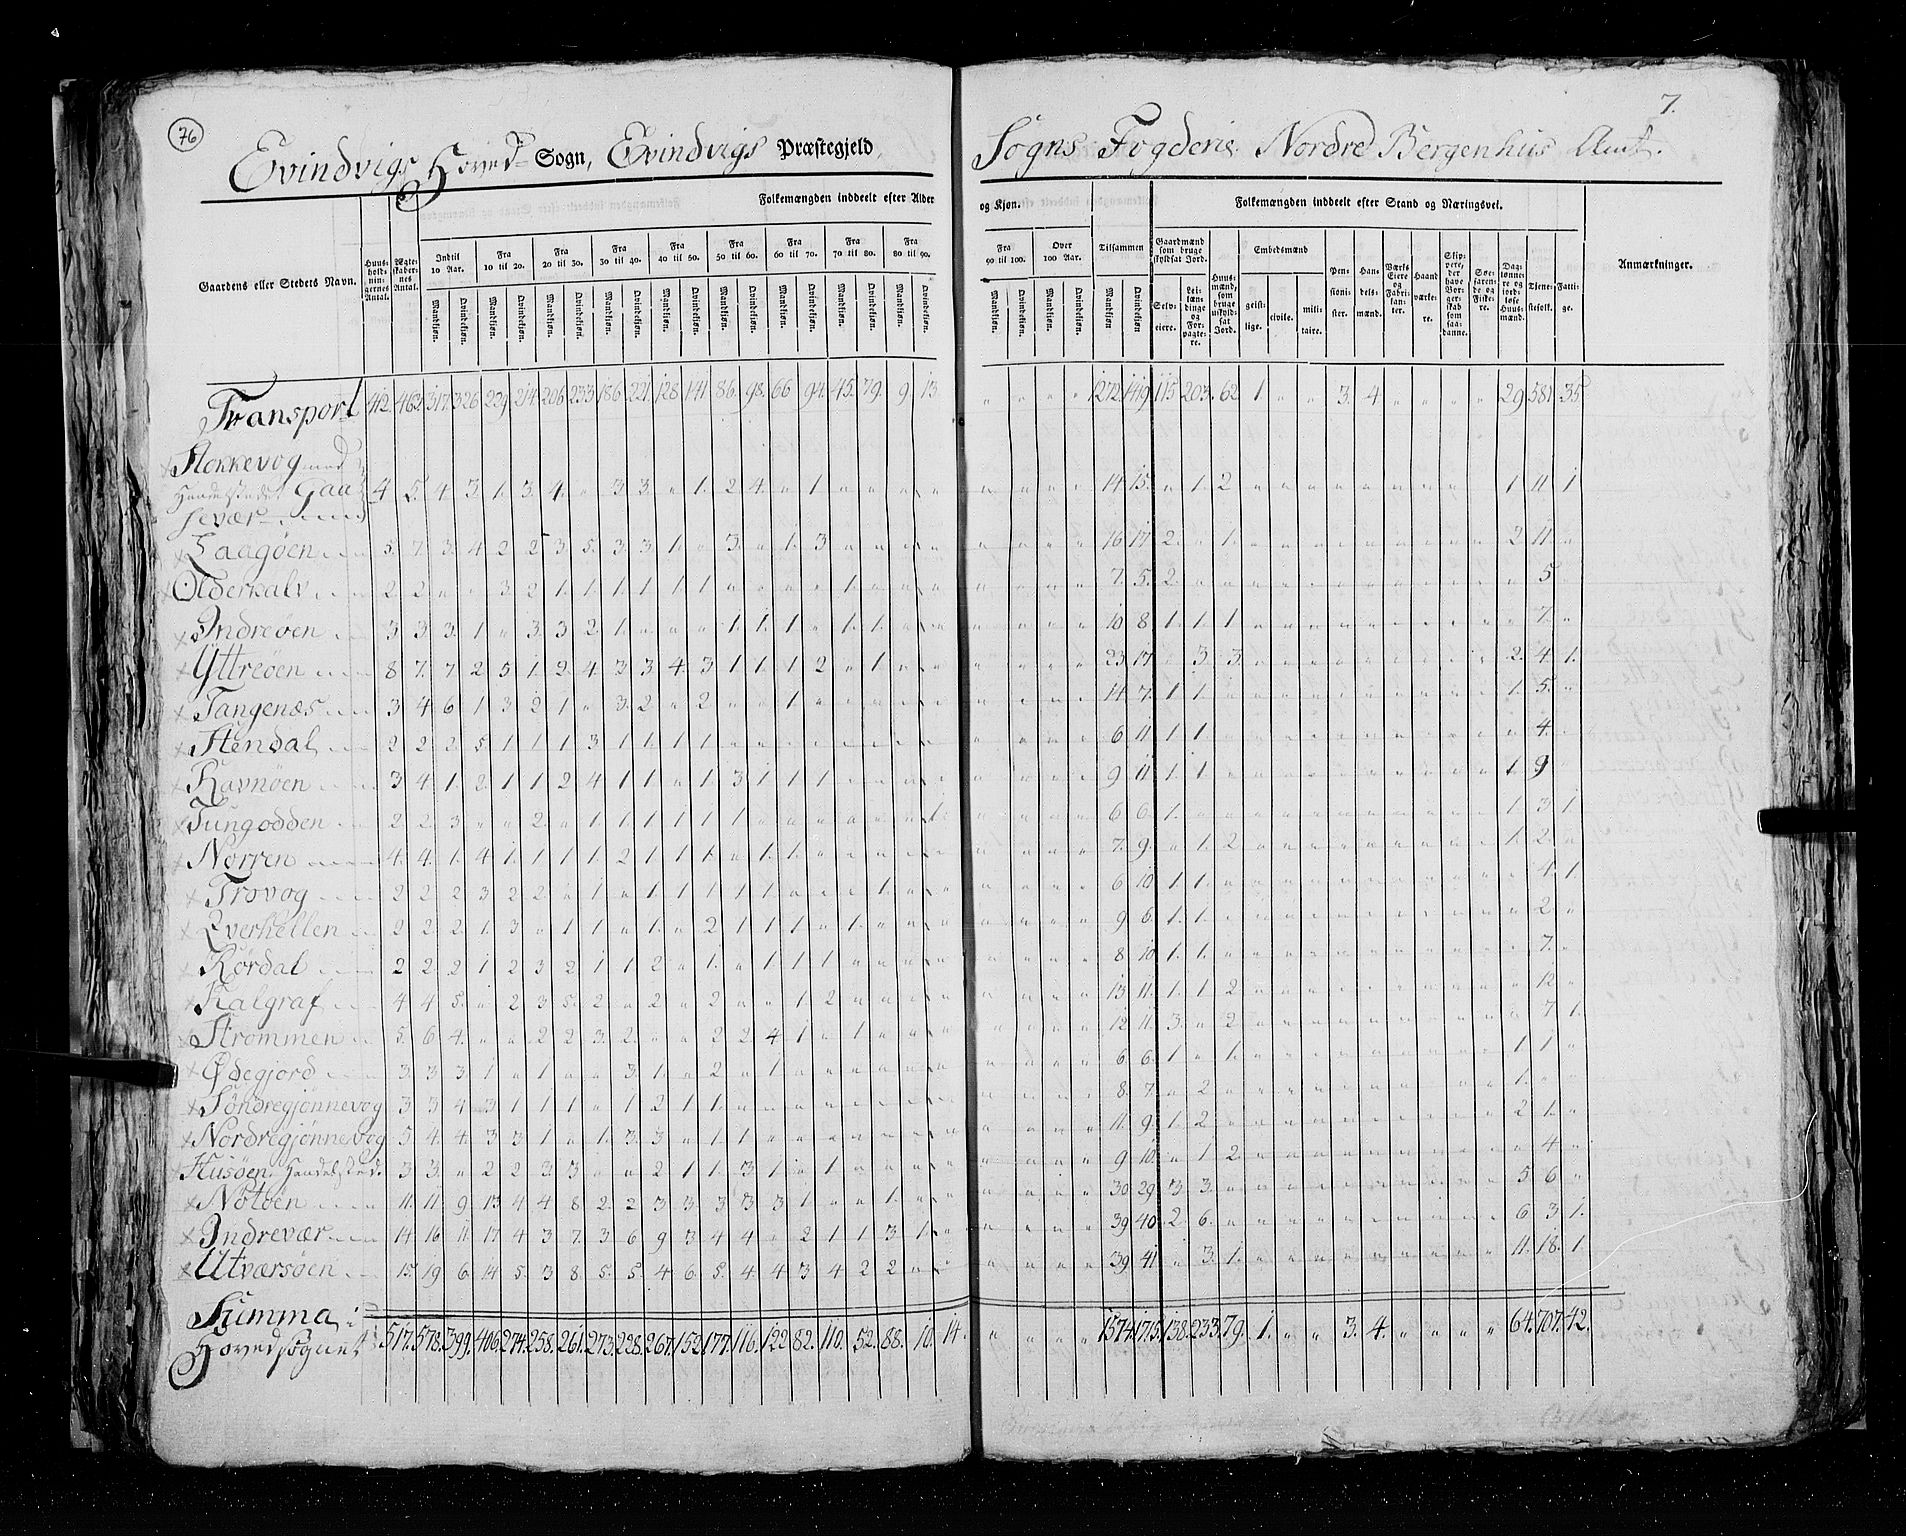 76
7.
Evindvigs Hoved Sogn, Evindvigs Præstegjeld, Sogns Fogderie Nordre Bergenhus Amt.
Gaardens eller Stedets Navn. Huusholdningernes Antal. Ægteskabernes Antal. Folkemængden inddeelt efter Alder og Kjøn. Tilsammen Folkemængden inddeelt efter Stand og Næringsvei. Anmærkninger.
Indtil 10 Aar. Fra 10 til 20. Fra 20 til 30. Fra 30 til 40. Fra 40 til 50. Fra 50 til 60. Fra 60 til 70. Fra 70 til 80. Fra 80 til 90. Fra 90 til 100. Over 100 Aar.
Mandkjøn. Qvindekjøn.
Gaardmænd som bruge skyldsat Jord. Selveiere. Leilændinge og Forpagtere. Huusmænd, som bruge uskyldsat Jord. Embedsmænd geistlige. civile. militaire. Pensionister. Handelsmænd. Værks Eiere og Fabrikanter. Haandværkere. Skippere, der have Borgerskab som saadanne. Søefarende og Fiskere. Dagslønnere og jordløse Huusmænd. Tjenestefolk. Fattige.
Transport 412. 462. 317. 326 239. 214 206 233 186. 221. 128 141 86. 98. 66 94. 45. 79. 9. 13 " " " " 1272. 1419. 115 203. 62 1. " " 3. 4. " " " " 29 581. 35.
Flokkevog med
Handelstedet Gaa 4 5. 4 3 1. 3. 4. " 3 3. " 1. 2 4. " 1 " " " " " " " " 14 15. " 1. 2 " " " " " " " " " 1 11 1
sevær
Laagøen 5. 7. 3. 4 2 2 3 5. 3 3 1. " 3. " 1. 3 " " " " " " " " 16 17 2. " 1. " " " " " " " " " 2 11. "
Olderkalv 2 2 " " 3 2 1. 1. 1. 1. 1 1 " " " " 1. " " " " " " " 7. 5. 2. " " " " " " " " " " " " 5 "
Indreøen 3 3 3. 1 " 3. 3 2. 1. " " " 1. 1. 1 " 1. 1. " " " " " " 10 8 1. 1. 1 " " " " " " " " " " 7. "
Yttreøen 8 7. 7 2 5 1 2 4. 3 3 4. 3 1 1 1 2 " 1. " " " " " " 23. 17. " 3 3. " " " " " " " " " 2. 4. 1.
Tangenæs 3 4 6 1 3 2 1. " 3. 2 " 2 " " 1 " " " " " " " " " 14 7. 1 1. " " " " " " " " " " 1. 5. "
Stendal 2 2 2. 5 1 1 1 3 1 1 1. 1 " " " " " " " " " " " " 6 11. 1 1. " " " " " " " " " " " 4. "
Ravnøen 3 4 1. 2 1 1 2 4 1 1 " 1. 3 1. 1 1 " " " " " " " " 9 11 1. 1. " " " " " " " " " " 1. 9 "
Tungodden 2 2 3 " " 2. " 1. 1 1 1 1 1 " " " " " " 1. " " " " 6 6. 1. " " " " " " " " " " " 1 3 1
Norren 4. 4. 1. 4 1. 1 1 1. 2 1 1 1. " 1. 1. " " " " " " " " " 7. 9. " 1. 2 " " " " " " " " " 1. 2. "
Trovog 2 2 2 3 2 2. " 1 " 1 1 1 1 1 " " " 1. " " " " " " 6 10. 1. 1. " " " " " " " " " " " 4. 1.
Tverhellen 2 2 2. 1. 3 " 1 1 " 1. " 2 1 1 1. " 1. " " " " " " " 9 6. 1. 1. " " " " " " " " " " " 2. "
Rørdal 2 2. 2 1 2 3 2 1 1 2 " 1. " 1 1 1 " " " " " " " " 8 10 1. 1. " " " " " " " " " " " 7. "
Kalgraf 4 4 5. " 2 3 5. 2 " 2 " 2 " " 1 2 " " " " " " " " 13 11. 1. 1 2 " " " " " " " " " " 12 "
Strømmen 5. 6 4. " " 2 2 3. 2. " " 2 2 4 1 " 1 " " " " " " " 12 11. 3. " 2 " " " " " " " " " " 7 1.
Ødegjord 3. 3 3 1 " 1. " " 3. 1. " 2 " 1 " " " " " " " " " " 6 6. 1. " 1. " " " " " " " " " 1 1 "
Søndregjønnevog 3 3 4 3 1 1 1 " 1 2 1 1. " " " " " " " " " " " " 8. 7. " 2 " " " " " " " " " " 1. " "
Nordregjønnevog 5 4. 4. 3 3 1. " 1. 3. 3 " 1 1 " " " " " " " " " " " 11. 9. 1. 2. " " " " " " " " " " 2 1. "
Husøen Handelsted 3 3. " 2 2 3 3 " " 2 1 1. 3 1 " 1. " " " " " " " " 9 10. " 1 2 " " " " " " " " " " 4 "
Notøen 11. 11. 9 13 4 4 8 2. 2 3 3. 3 3 3 1 " " 1. " " " " " " 30 29 3 3. " " " " " " " " " " 5 6 "
Indrevær 14 16 11. 17 4 3 7. 3 6 9 3 4 4 " 2 1 1 3 1. " " " " " 39 40. 2 6. " " " " " " " " " " 6 3 1.
Utværsøen 15 19 6. 14 5. 3 8 5. 5. 4 6. 5. 4. 4 3 4 2 2 " " " " " " 39 41 " 3. 1. " " " " " " " " " 11. 18. 1
Summa i
Hovedsognet 517. 578. 399. 406. 274. 258. 261. 273. 228. 267. 152 177. 116. 122 82. 110. 52. 88. 10. 14. " " " " 1574. 1715. 138. 233. 79. 1. " " 3. 4. " " " " 64. 707. 42.